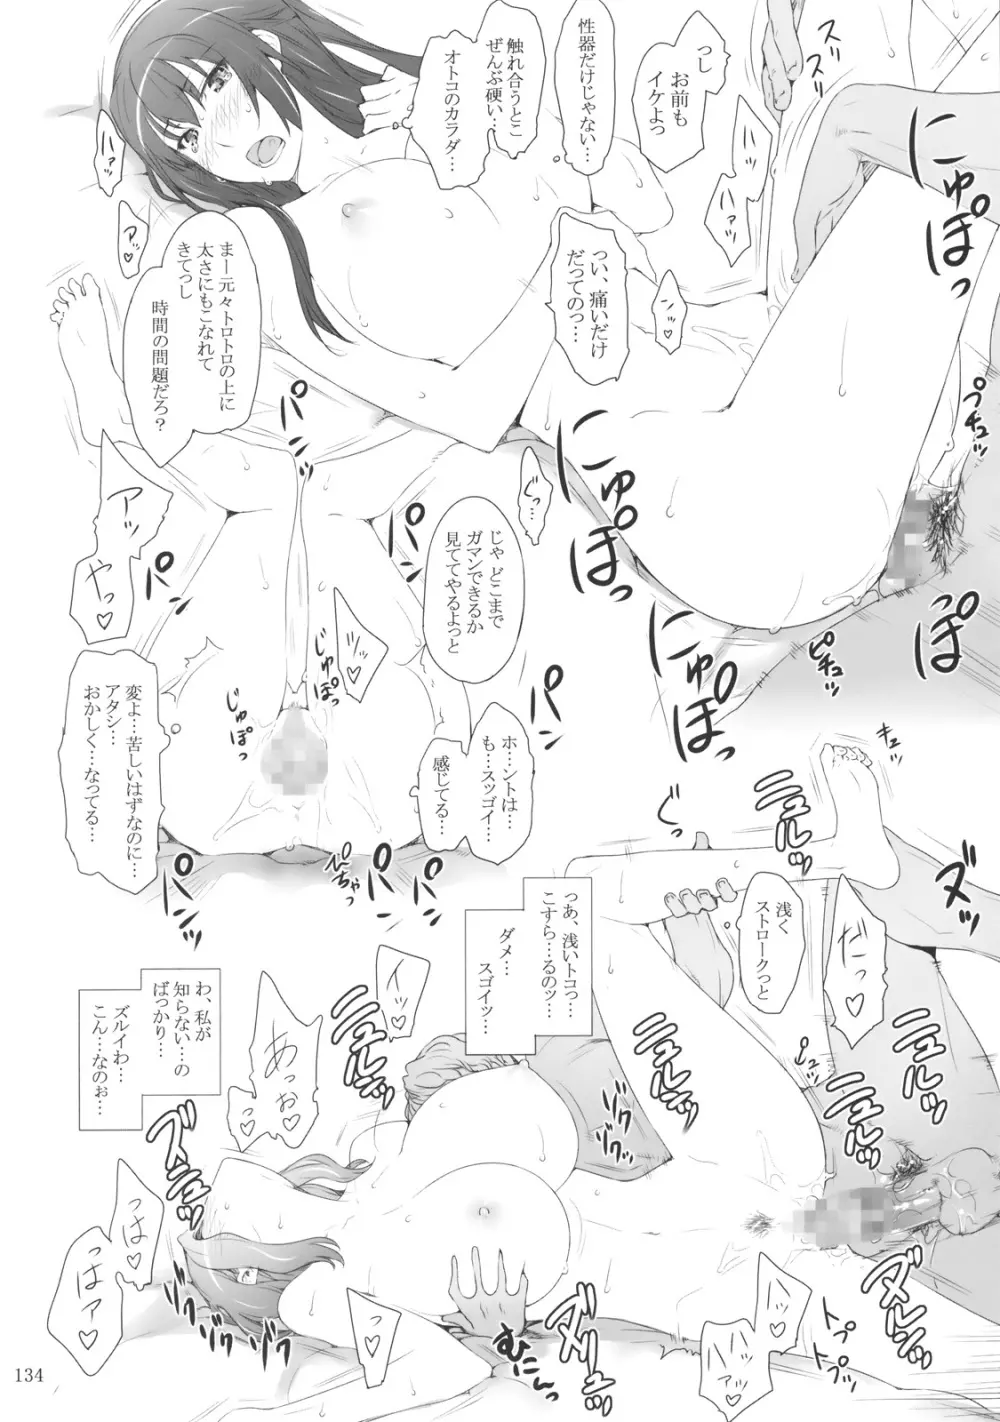 っし
お前も
イケよっ
性器だけじゃない…
触れ合うとこ
ぜんぶ硬い…
オトコのカラダ…
スリ
スリ
ハァッ
ハァッ
アッ
にゅぽっ
つい、痛いだけ
だってのっ…
ンッ
まー元々トロトロの上に
太さにもこなれて
きてっし
時間の問題だろ？
プチュッ
パンッ
にゅぽっ
ぐっ…
アッ
やっ♡
じゃ どこまで
ガマンできるか
見ててやるよっと
パンッ
パンッ
にゅぽっ
ぽっ
ピチュッ
じゅぽっ
じゅぽっ
パンッ
変よ…苦しいはずなのに…
アタシ…
おかしく…なってる…
ホ…ントは…
も…スッゴイ…
感じてる…
キュッ
ニュルルッ
ぐっ
パンッ
パンッ
ぴちゃっ
ヌッ
浅く
ストロークっと
だっ♡
っあ、浅いトコっ…
こすら…るのッ…
ダメ…
スゴイッ…
わ、私が
知らない…の
ばっかり…
ズルイわ…
こん…なのぉ…
イッ
♡
あっぉ
♡
っ♡
ニュルルッ
ニュルルッ
ニュルルッ
ズニュッ
ゾクゾクッ
っはっ♡
っはァ♡
ゾクゾクッ
むにんっ
ヌッ
ハァッ♡
トプ
トプッ
ヌルルッ
134